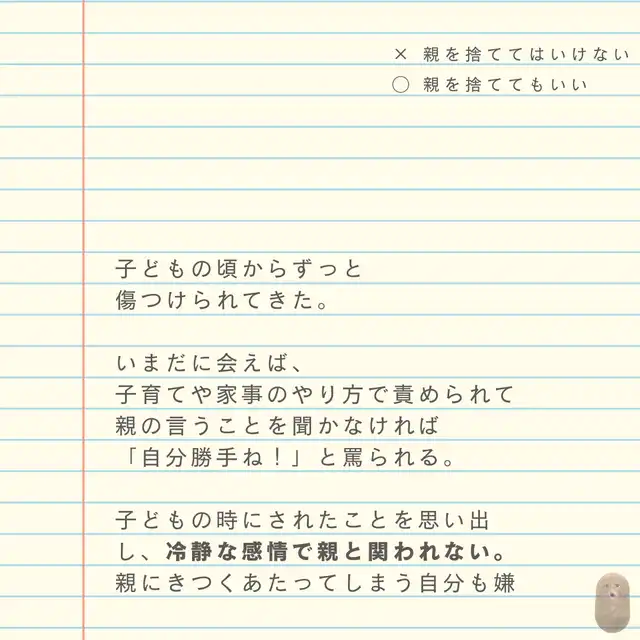 × 親を捨ててはいけない
○ 親を捨ててもいい
子どもの頃からずっと
傷つけられてきた。
いまだに会えば、
子育てや家事のやり方で責められて
親の言うことを聞かなければ
「自分勝手ね！」と罵られる。
子どもの時にされたことを思い出
し、冷静な感情で親と関われない。
親にきつくあたってしまう自分も嫌